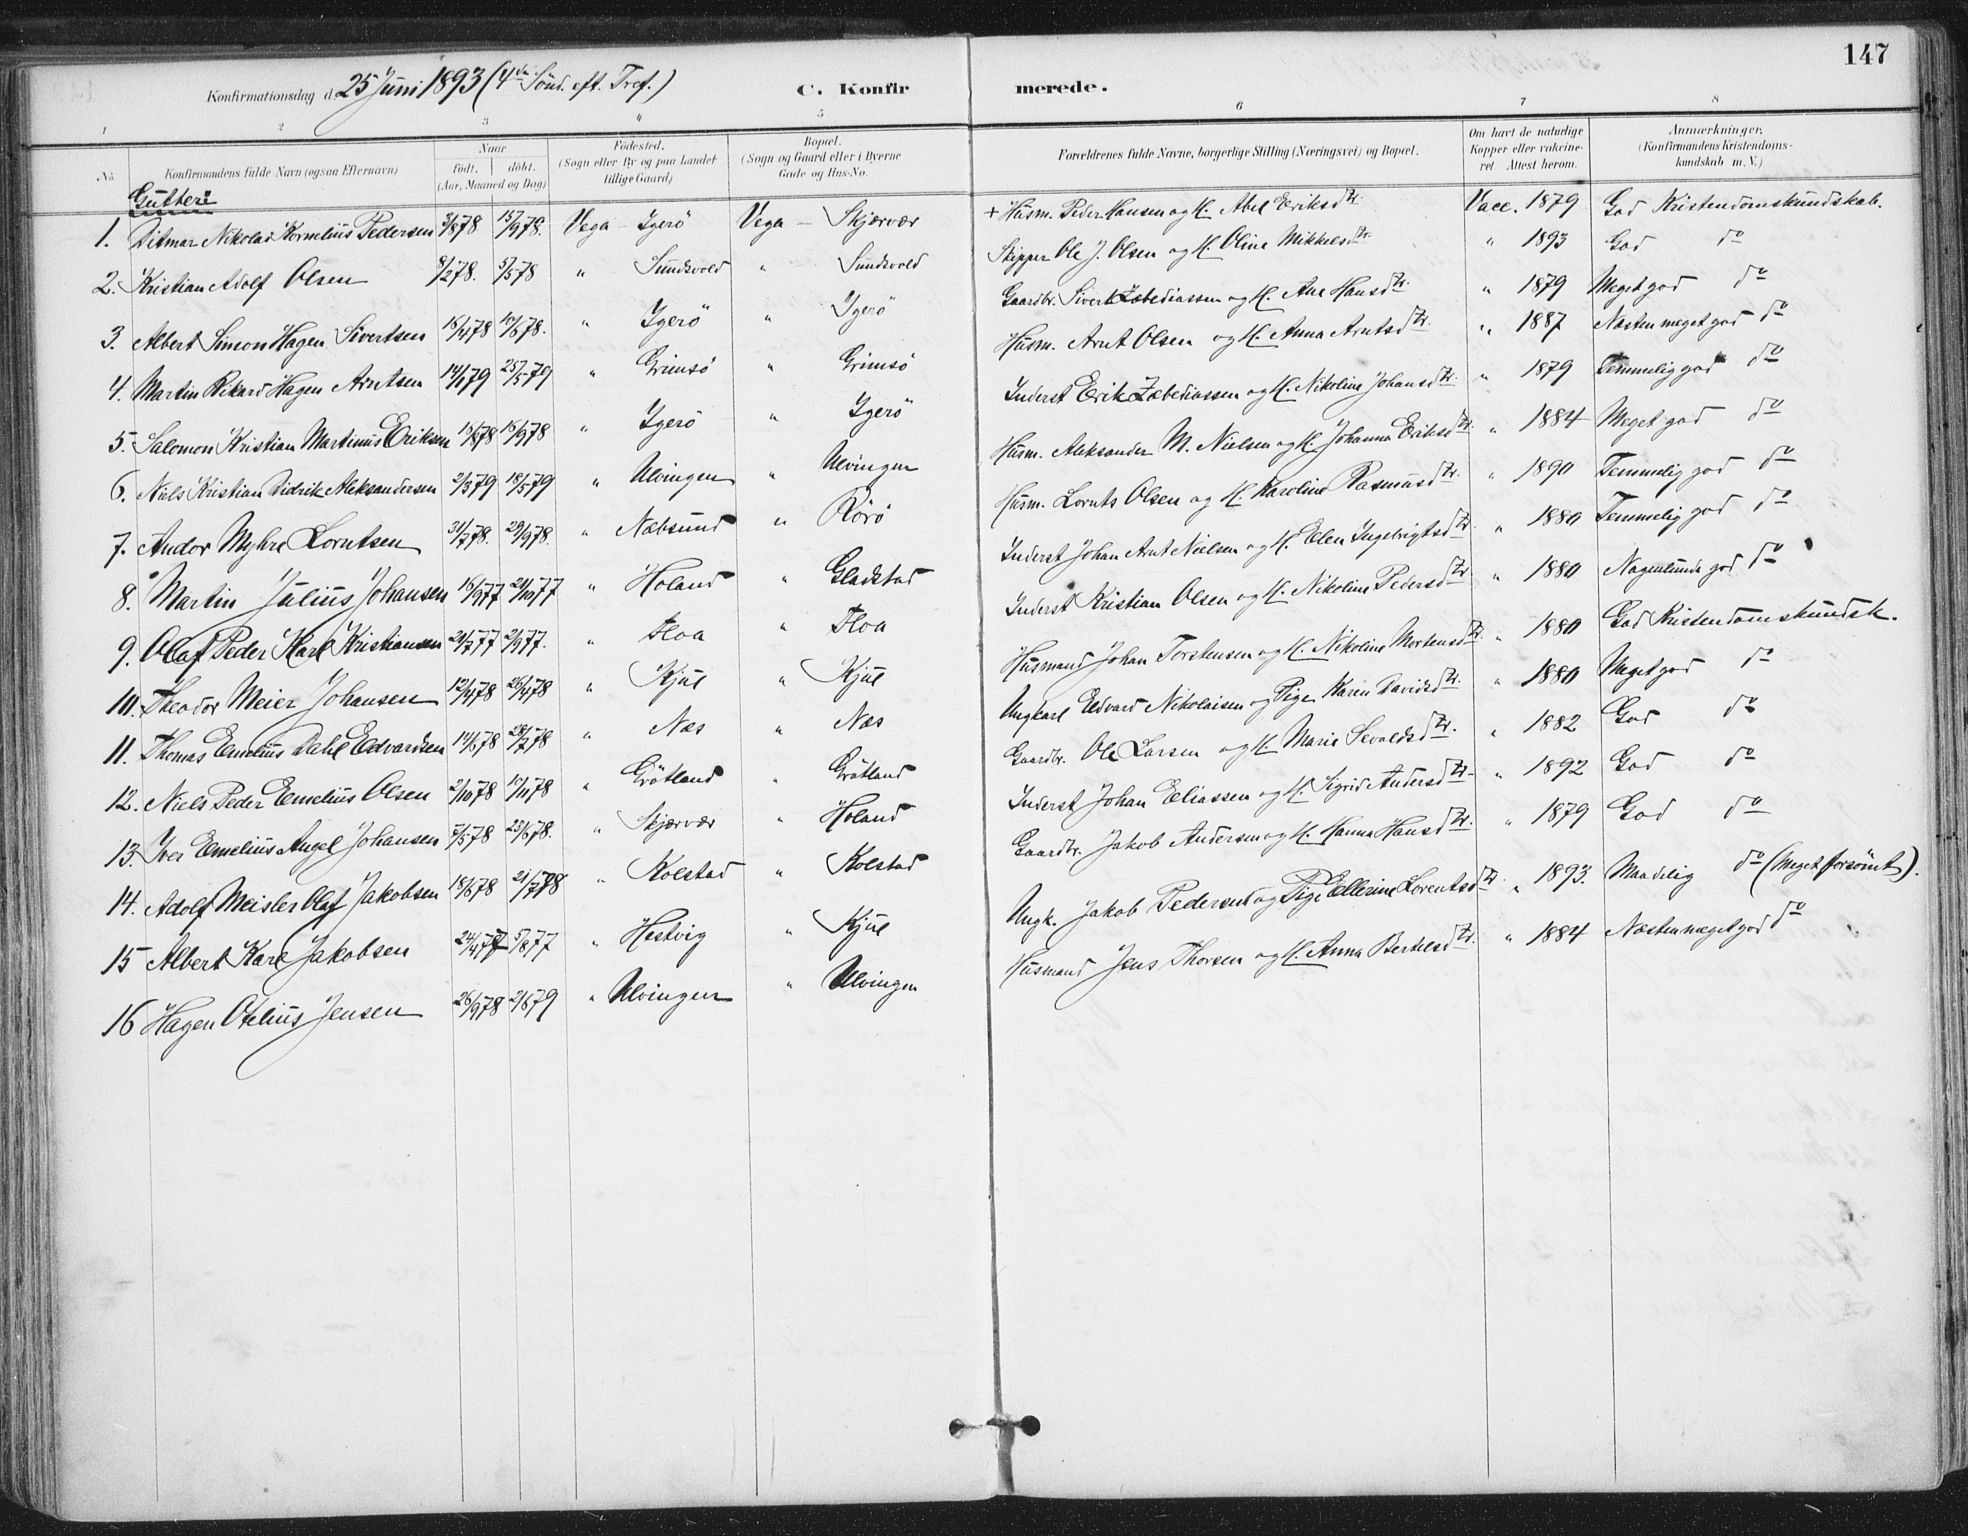 147
Konfirmationsdag d. 25 Juni 1893 (4de Sönd. eft. Tref.) C. Konfirmerede.
1 2 3 4 5 6 7 8
No. Konfirmandens fulde Navn (ogsaa Efternavn) Naar födt. döbt. (Aar, Maaned og Dag) Födested. (Sogn eller By og paa Landet tillige Gaard) Bopæl. (Sogn og Gaard eller i Byerne Gade og Hus-No. Forældrenes fulde Navne, borgerlige Stilling (Næringsvei) og Bopæl. Om havt de naturlige Kopper eller vakcineret Attest herom. Anmærkninger, (Konfirmandens Kristendomskundskab m. V.)
Gutter:
1. Ditmar Nikolai Kornelius Pedersen 3/8 78 15/9 78. Vega - Ygerö Vega - Skjærvær + Husm. Peder Hansen og H. Abel Eriksdtr. Vacc. 1879 God Kristendomskundskab.
2. Kristian Adolf Olsen 8/2 78. 5/5 78 " Sundsvold " Sundsvold Skipper Ole J. Olsen og H. Oline Mikkelsdtr. " 1893 God do
3. Albert Simon Hagen Sivertsen 16/4 78 10/6 78. " Ygerö " Ygerö Gaardbr. Sivert Zebediassen og H. Ane Hansdtr. " 1879 Meget god do
4. Martin Rikard Hagen Arntsen 14/1 79 25/5 79 " Grimsö " Grimsö Husm. Arnt Olsen og H. Anna Arntsdtr. " 1887 Næsten meget god do
5. Salomon Kristian Martinus Eriksen 15/8 78 15/9 78 " Ygerö " Ygerö Inderst Erik Zebediassen og H. Nikoline Johansdtr. " 1879 Temmelig god do
6. Niels Kristian Didrik Aleksandersen 2/3 79 18/5 79 " Ulvingen " Ulvingen Husm. Aleksander M. Nielsen og H. Johanna Eriksdtr. " 1884 Meget god do
7. Andor Myhre Lorntsen 31/7 78. 29/9 78. " Næbsund " Rörö Husm. Lornts Olsen og H. Karoline Rasmusdtr. " 1890 Temmelig god do
8. Martin Julius Johansen 16/9 77 21/10 77 " Holand " Gladstad Inderst Johan Arnt Nielsen og H. Elen Ingebrigtsdtr. " 1880 Temmelig god do
9. Olaf Peder Karl Kristiansen 24/7 77 2/9 77. " Floa " Floa Inderst Kristian Olsen og H. Nikoline Pedersdtr. " 1880 Nogenlunde god do
10. Theodor Meier Johansen 12/4 78 26/4 78 " Kjul " Kjul Husmand Johan Torstensen og H. Nikoline Mortensdtr. " 1880 God Kristendomskundsk.
11. Thomas Emelius Dahl Edvardsen 14/6 78 28/7 78 " Næs " Næs Ungkarl Edvard Nikolaisen og Pige Karen Davidsdtr. " 1880 Meget god do
12. Niels Peder Emelius Olsen 2/10 78 10/11 78 " Grötland " Grötland Gaardbr. Ole Larsen og H. Marie Sevaldsdtr. " 1882 God do
13. Iver Emelius Angel Johansen 5/5 78 23/6 78. " Skjærvær " Holand Inderst Johan Eliassen og H. Sigrid Andersdtr. " 1892 God do
14. Adolf Meisler Olaf Jakobsen 18/6 78 21/7 78 " Kolstad " Kolstad Gaardbr. Jakob Andersen og H. Hanna Hansdtr. " 1879 God do
15 Albert Karl Jakobsen 24/4 77 5/8 77 " Hestvig " Kjul Ungk. Jakob Pedersen og Pige Ellerine Lorentsdtr. " 1893. Maadelig do (Meget forsömt).
16 Hagen Otelius Jensen 26/9 78 2/6 79 " Ulvingen " Ulvingen Husmand Jens Thorsen og H. Anna Bertelsdtr. " 1884 Næsten meget god do